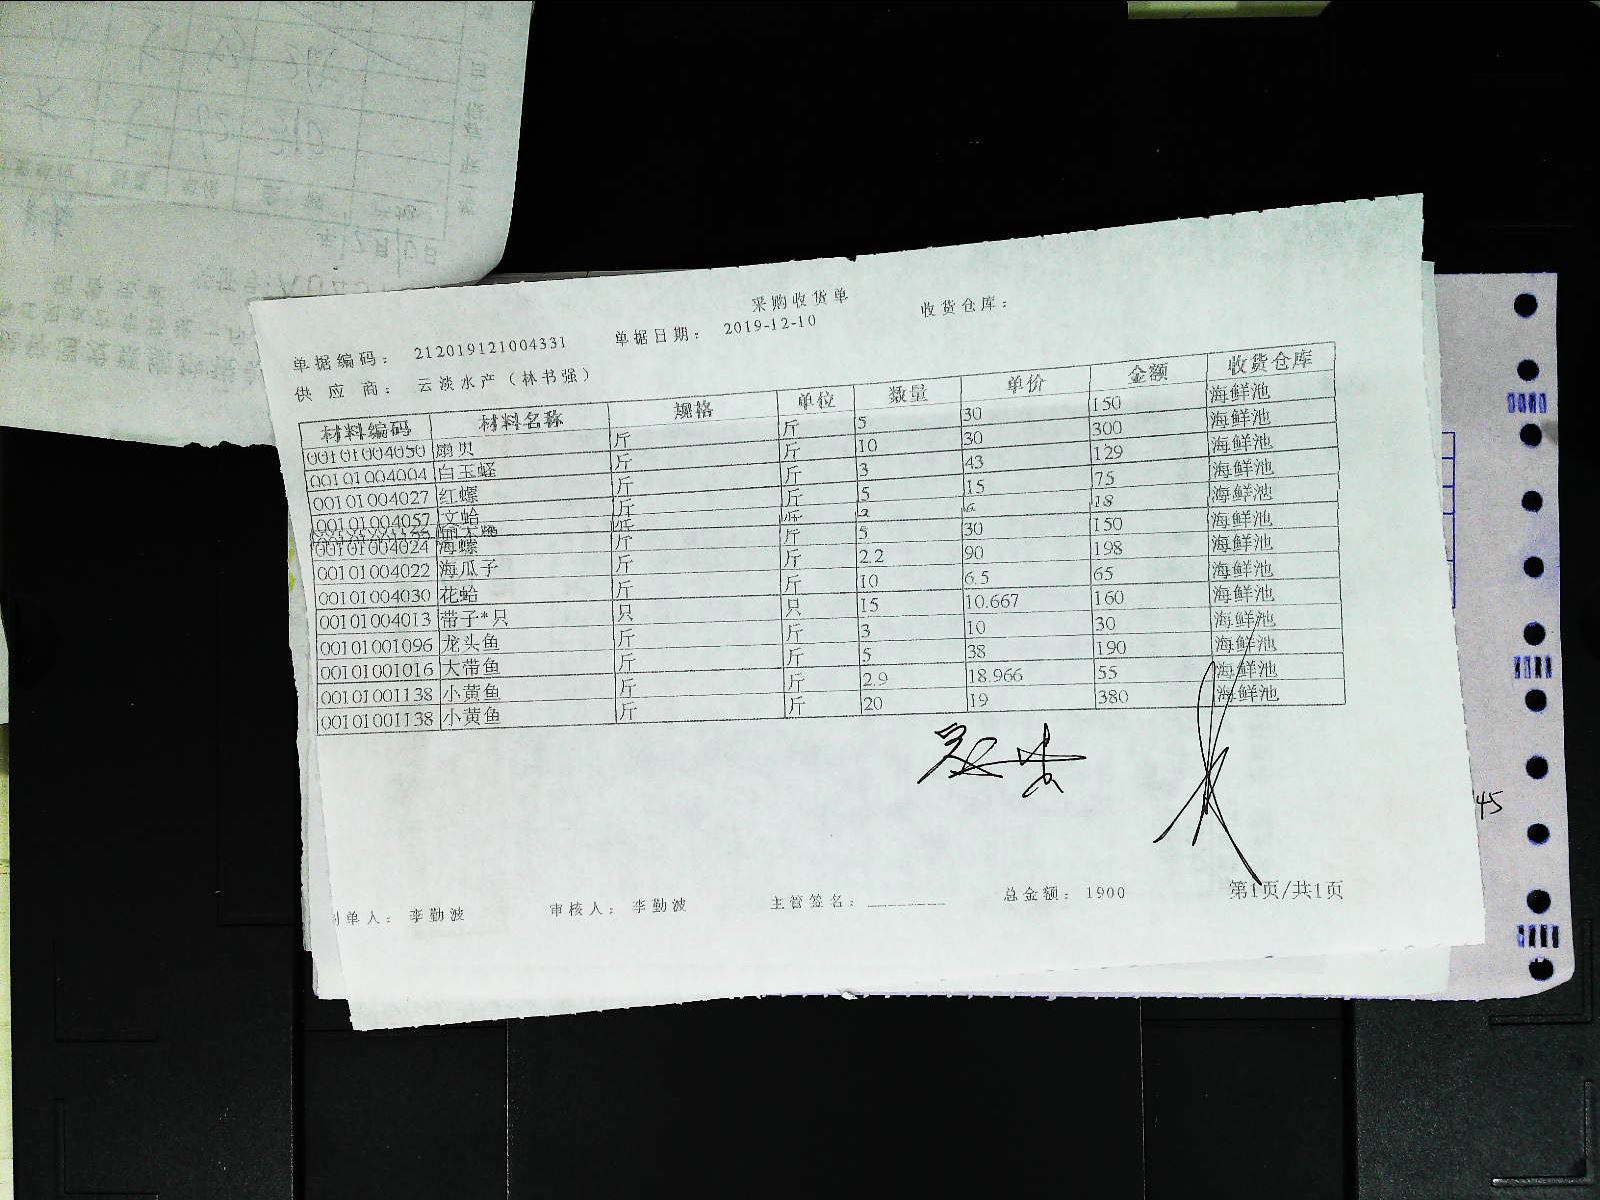 采购收货单
单据编码： 212019121004331 单据日期： 2019-12-10 收货仓库：
供应商： 云淡水产（林书强）
材料编码 材料名称 规格 单位 数量 单价 金额 收货仓库
00101004050 扇贝 斤 斤 5 30 150 海鲜池
00101004004 白玉蛏 斤 斤 10 30 300 海鲜池
00101004027 红螺 斤 斤 3 43 129 海鲜池
00101004057 文蛤 斤 斤 5 15 75 海鲜池
斤 斤 18 海鲜池
00101004024 海螺 斤 斤 5 30 150 海鲜池
00101004022 海瓜子 斤 斤 2.2 90 198 海鲜池
00101004030 花蛤 斤 斤 10 6.5 65 海鲜池
00101004013 带子*只 只 只 15 10.667 160 海鲜池
00101001096 龙头鱼 斤 斤 3 10 30 海鲜池
00101001016 大带鱼 斤 斤 5 38 190 海鲜池
00101001138 小黄鱼 斤 斤 2.9 18.966 55 海鲜池
00101001138 小黄鱼 斤 斤 20 19 380 海鲜池
45
单人： 李勤波 审核人： 李勤波 主管签名： 总金额： 1900 第1页/共1页